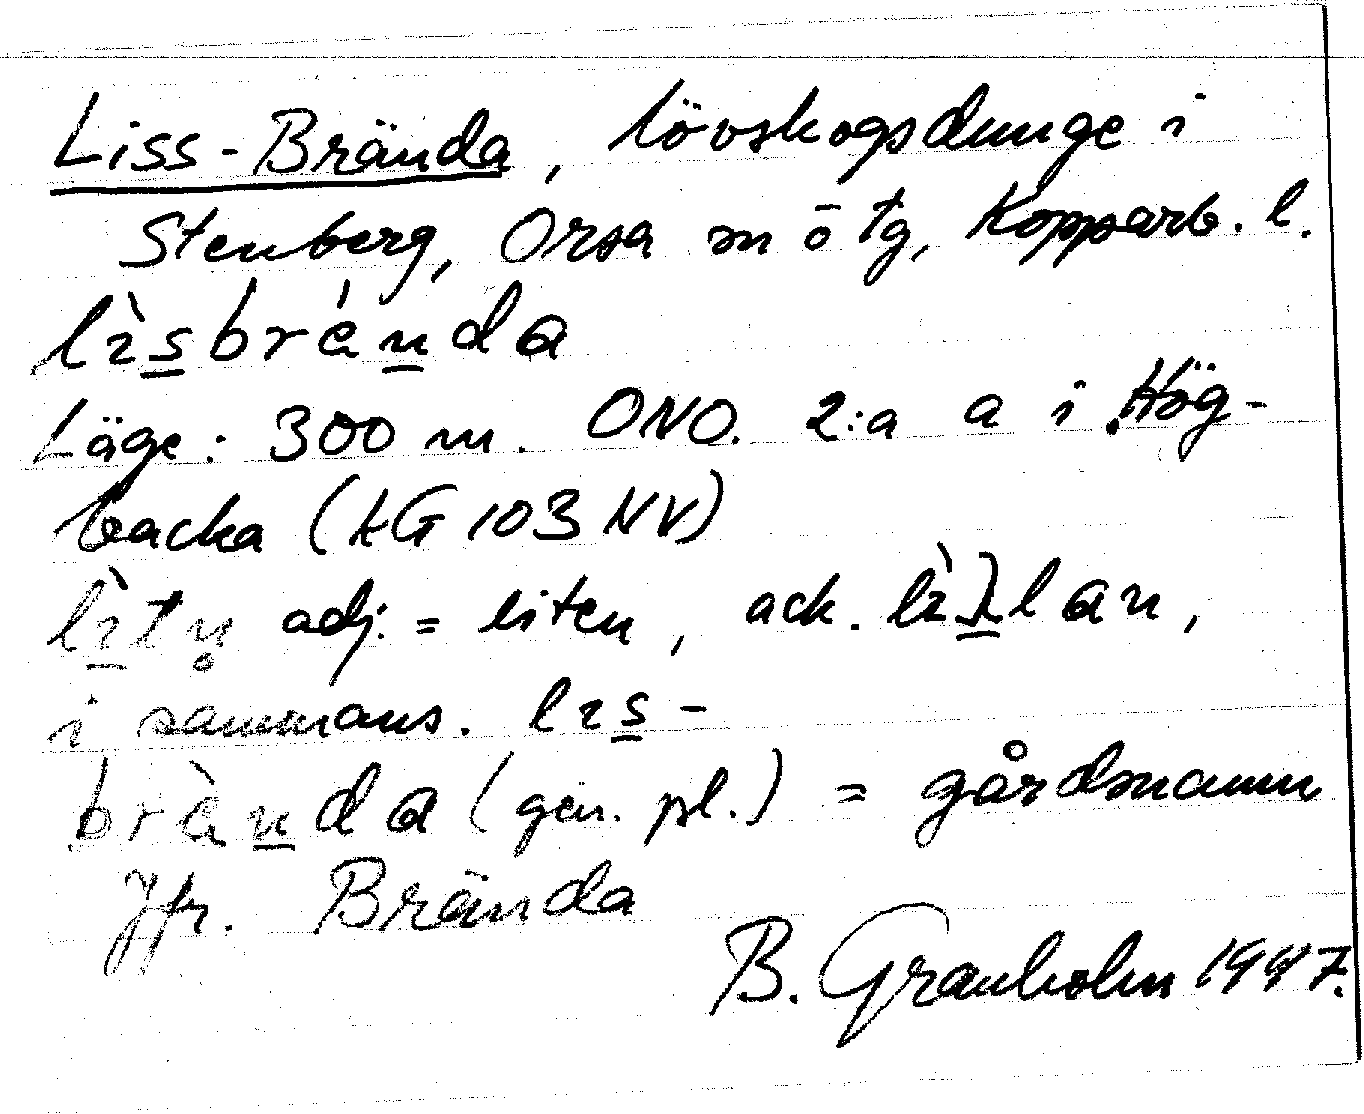 Liss-Brända, lövskogsdunge i
Stenberg, Orsa m ō tg, Kopparb. l.
lìsbrénda
Läge: 300 m. ONO. 2:a a i Hög-
backa (KG 103 NV)
adj. = liten, ack.
i sammans. lıs-
brànda (gen. pl.) = gårdsnamn
Jfr. Brända
B. Granholm 1947.